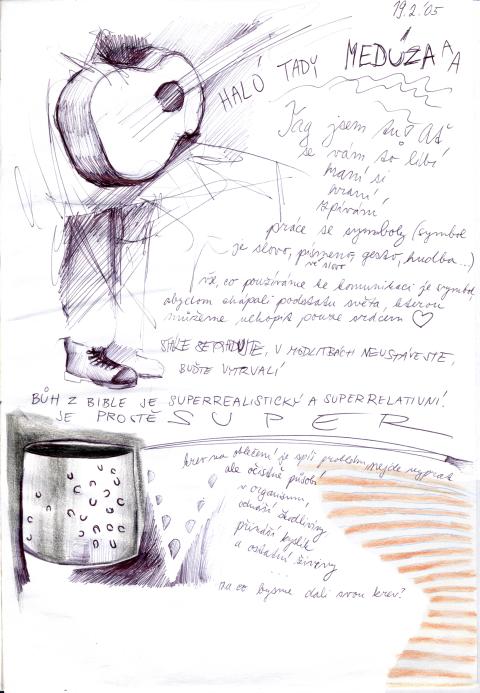 19.2.'05
HALÓ TADY MEDÚZA A A
jsem tu? Ať
se vám to líbí
hraní si
hraní,
zpívání,
práce se symboly (symbol
je slovo, písmeno, gesto, hudba...)
vše, co používáme ke komunikaci je symbol,
abychom chápali podstatu světa, kterou
můžeme uchopit pouze srdcem ♡
STÁLE SE RADUJTE, V MODLITBÁCH NEUSTÁVEJTE,
BUĎTE VYTRVALÍ
BŮH Z BIBLE JE SUPERREALISTICKÝ A SUPERRELATIVNÍ.
JE PROSTĚ SUPER
krev na oblečení je spíš problém, nejde vyprat
ale očistně působí
v organismu,
odnáší škodliviny
přináší kyslík
a ostatní živiny
...
na co bysme dali svou krev?